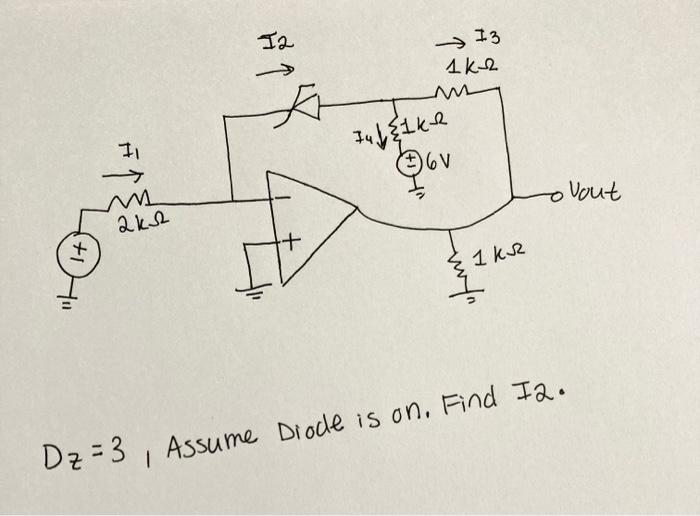 I2
I3
1kΩ
I4
1kΩ
6V
I1
2kΩ
Vout
1kΩ
Dz = 3, Assume Diode is on. Find I2.